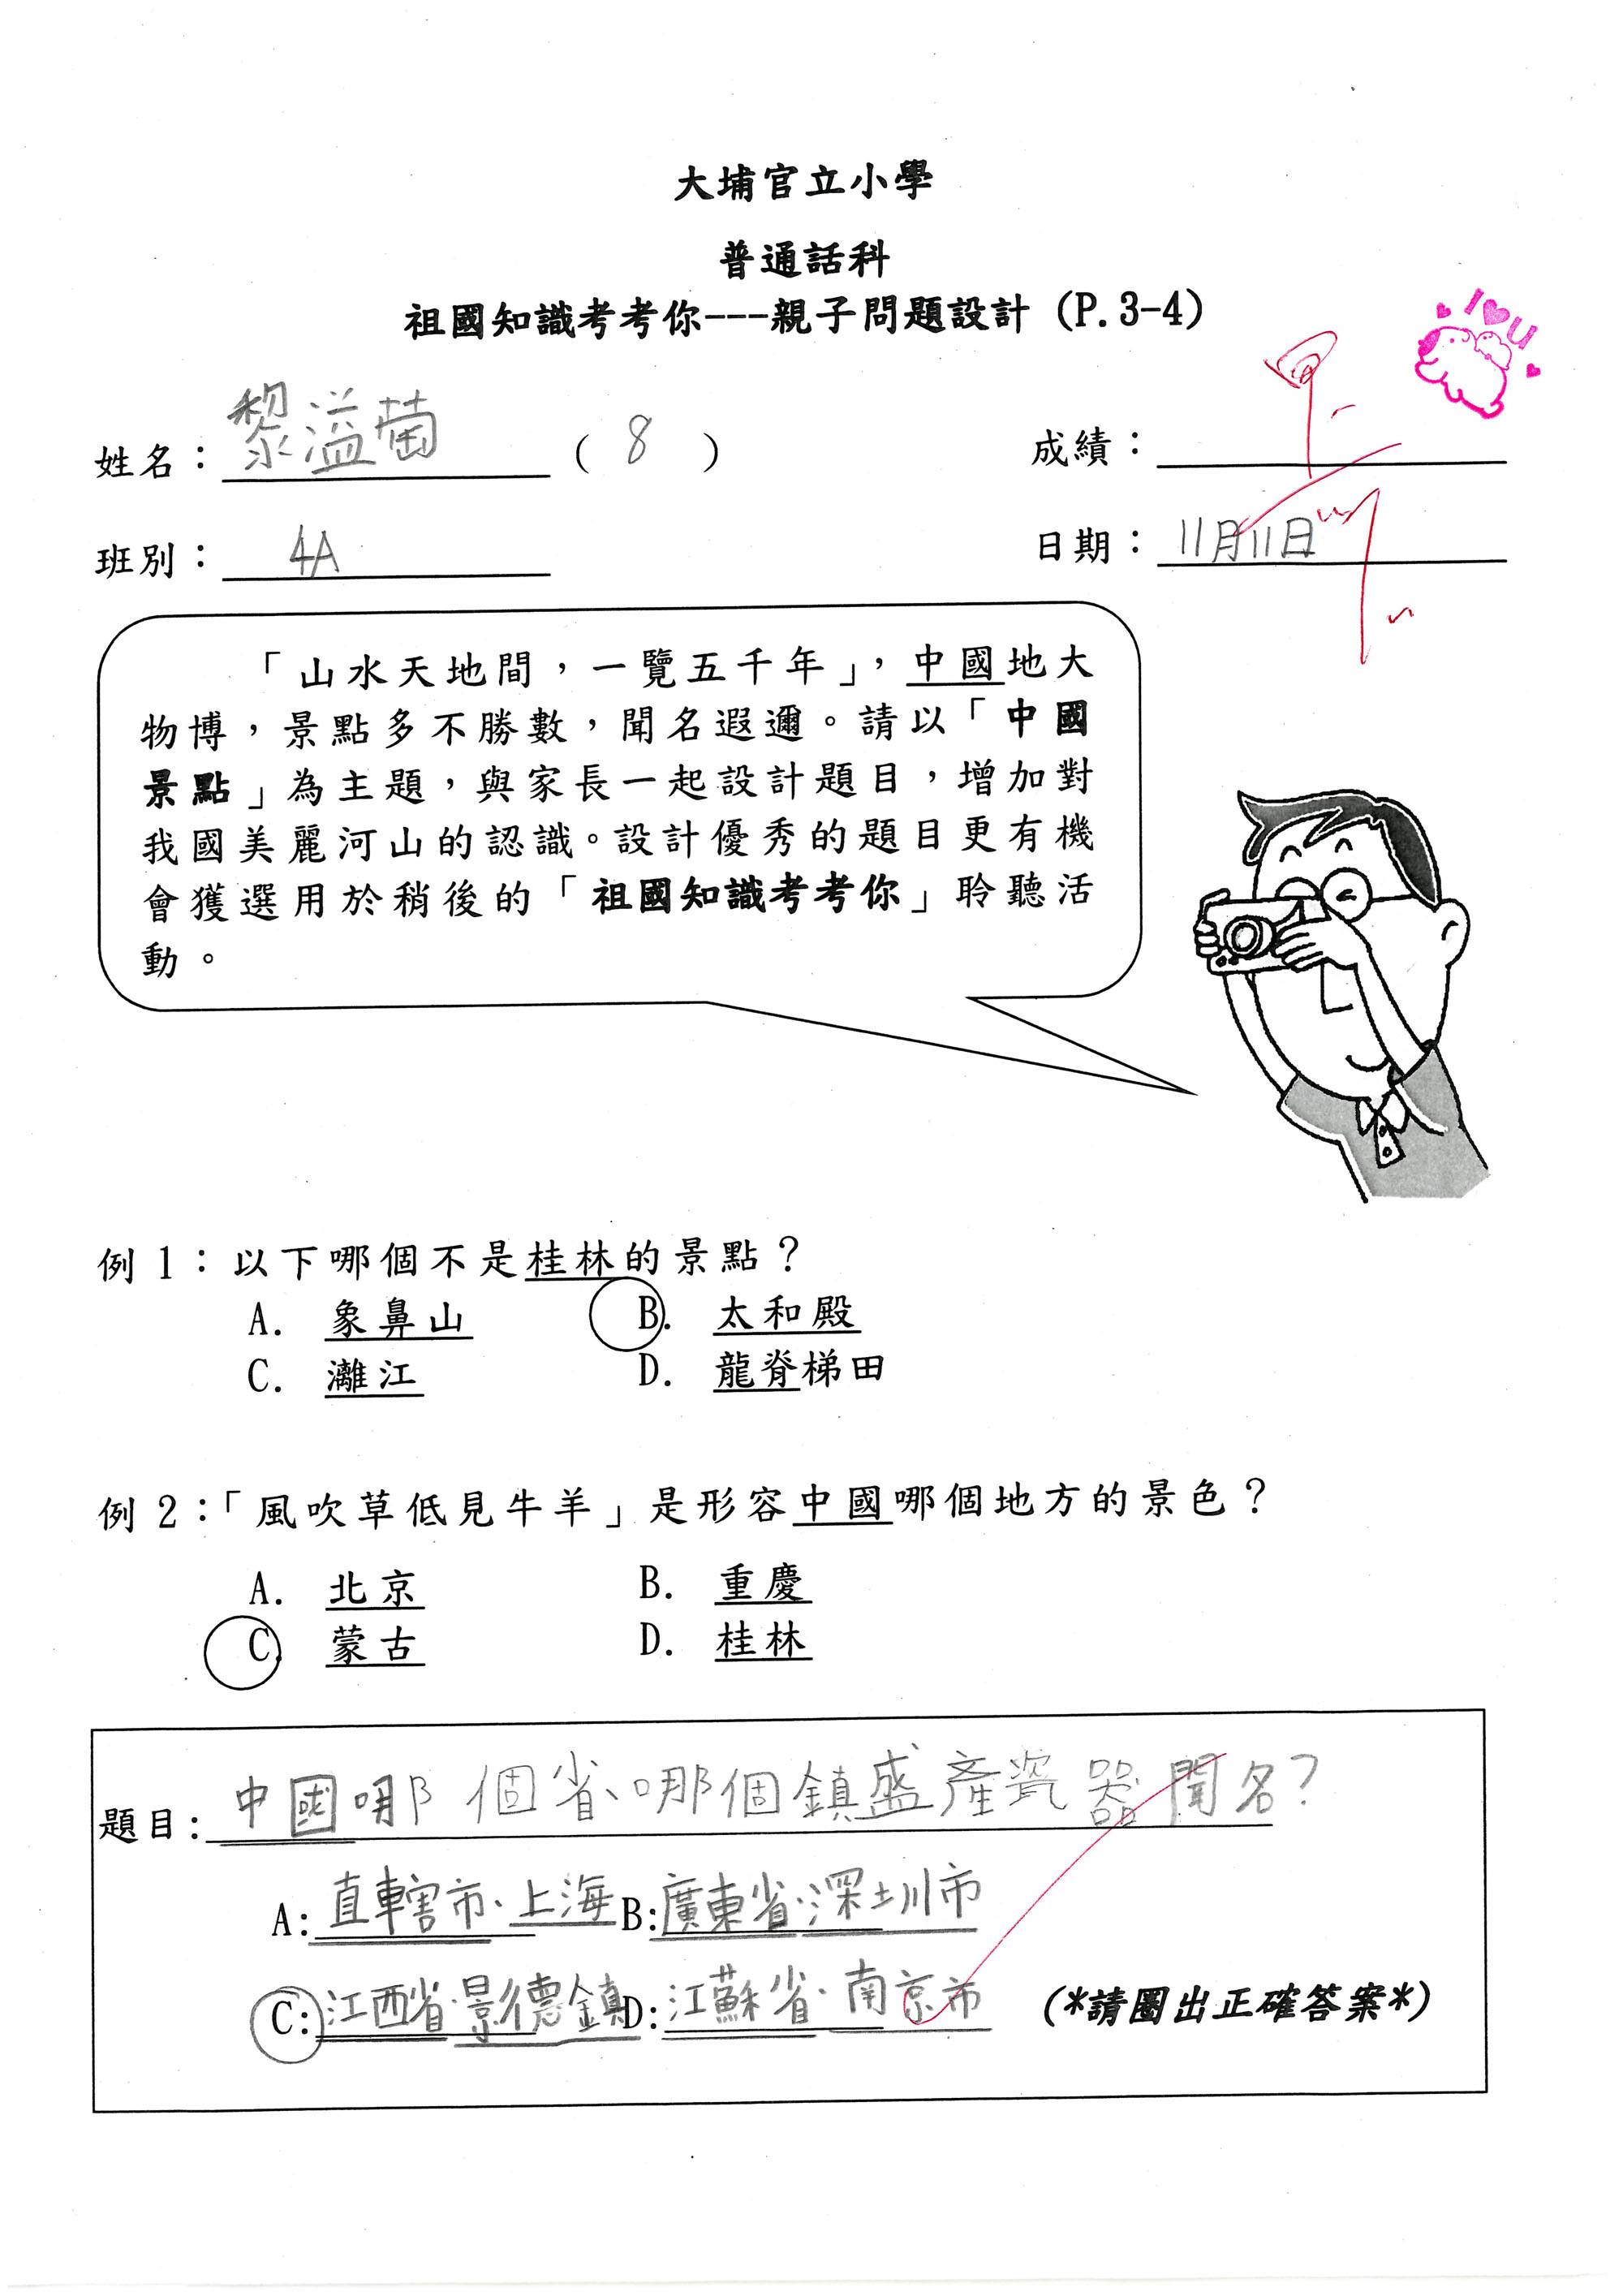 大埔官立小學
普通話科
祖國知識考考你---親子問題設計 (P.3-4)
I U
姓名：黎溢蔔 ( 8 )
成績：
班別：4A
日期：11月11日
「山水天地間，一覽五千年」，中國地大
物博，景點多不勝數，聞名遐邇。請以「中國
景點」為主題，與家長一起設計題目，增加對
我國美麗河山的認識。設計優秀的題目更有機
會獲選用於稍後的「祖國知識考考你」聆聽活
動。
例 1：以下哪個不是桂林的景點？
A. 象鼻山 B. 太和殿
C. 灕江 D. 龍脊梯田
例 2：「風吹草低見牛羊」是形容中國哪個地方的景色？
A. 北京 B. 重慶
C. 蒙古 D. 桂林
題目: 中國哪個省、哪個鎮盛產瓷器聞名?
A: 直轄市·上海 B: 廣東省·深圳市
C: 江西省·景德鎮 D: 江蘇省·南京市 (*請圈出正確答案*)